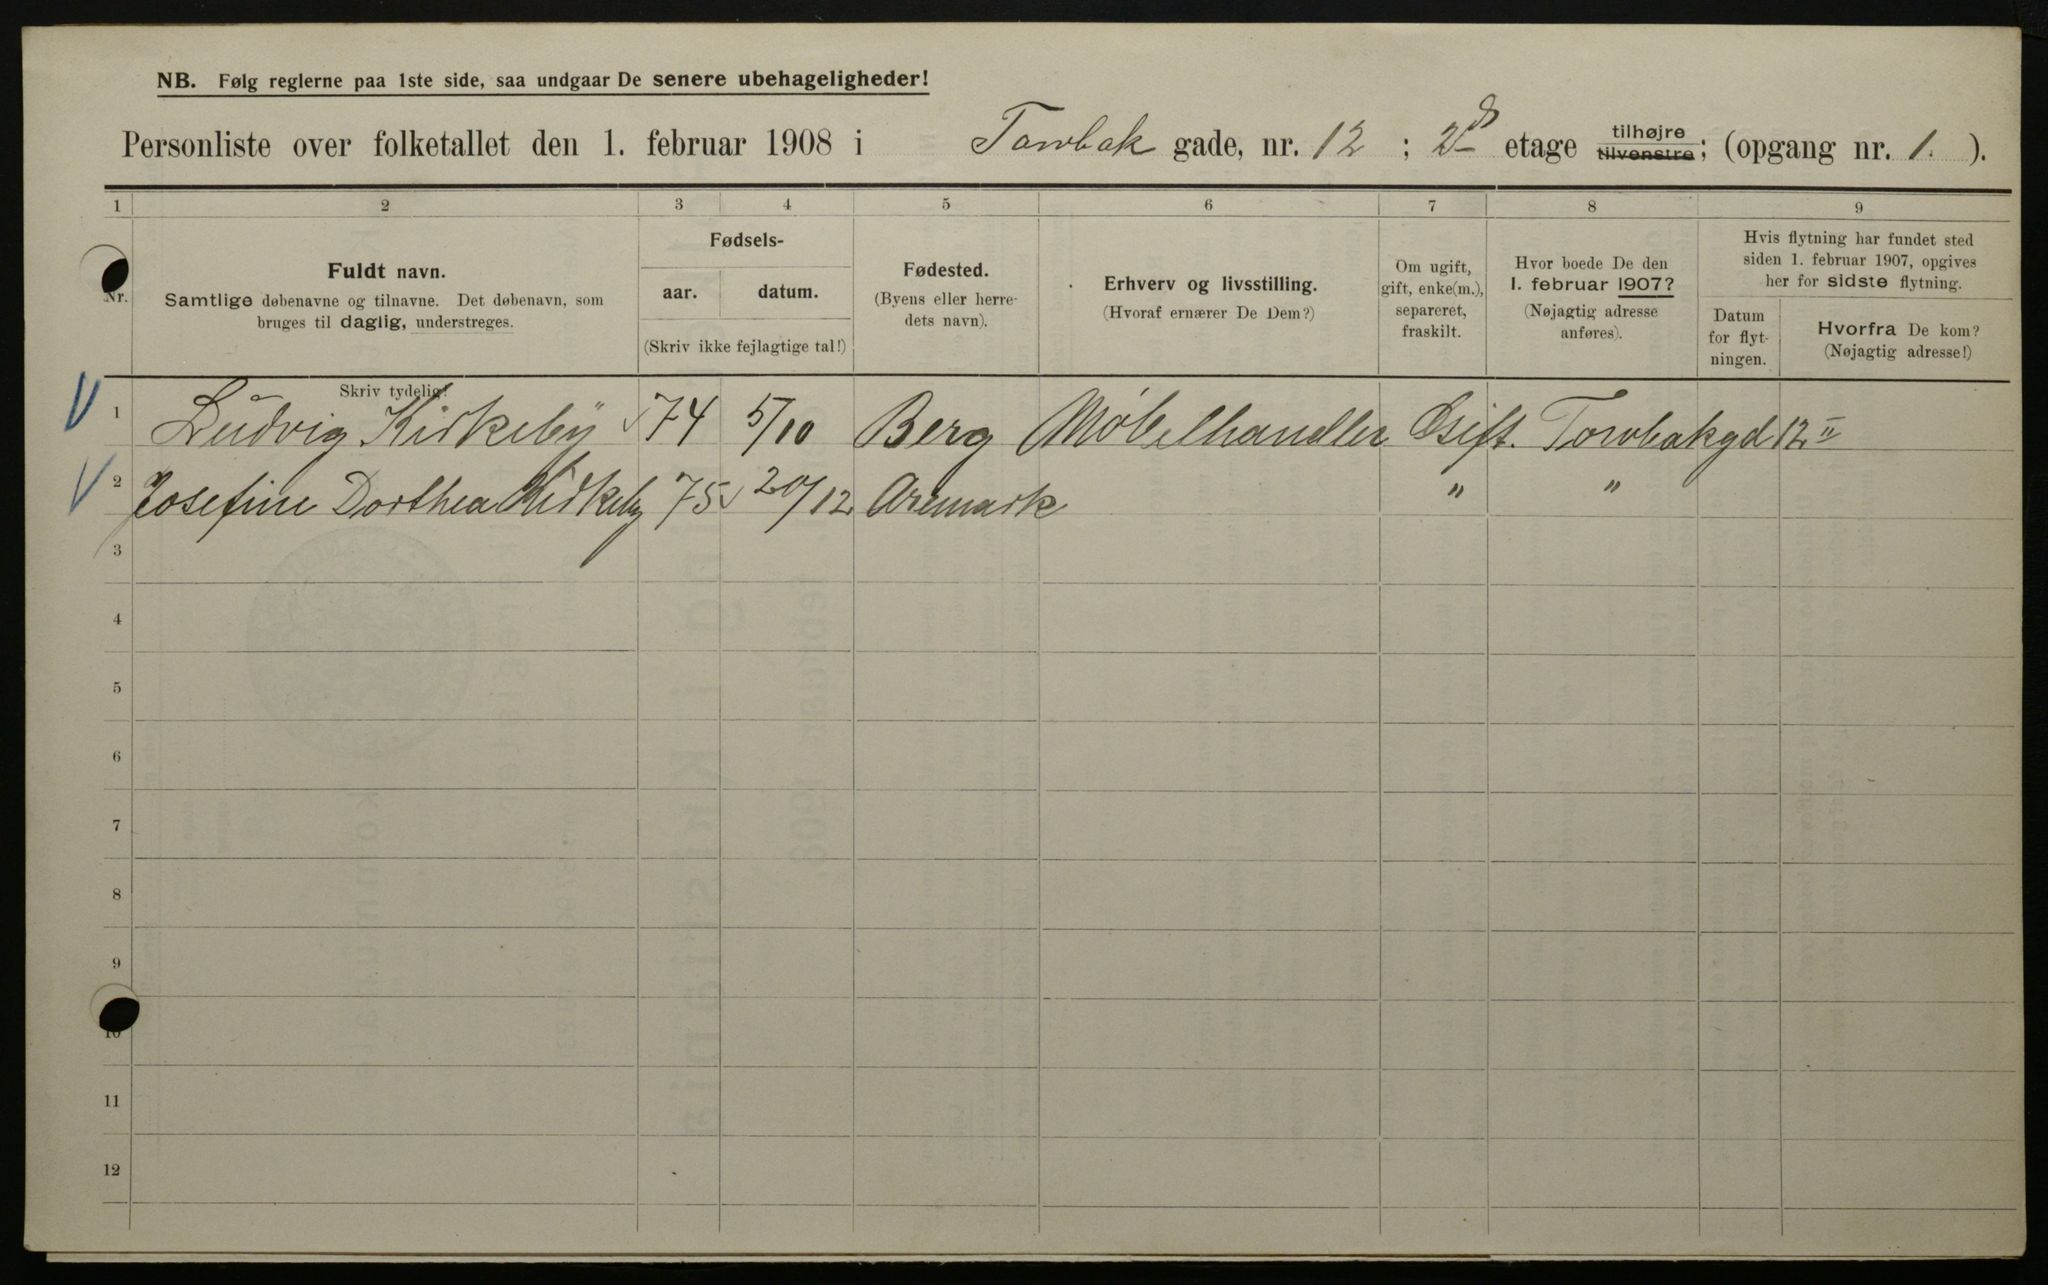 NB. Følg reglerne paa 1ste side, saa undgaar De senere ubehageligheder!
Personliste over folketallet den 1. februar 1908 i Torvbak gade, nr. 12 ; 2 etage tilhøjre tilvenstre; (opgang nr. 1. ).
1 2 3 4 5 6 7 8 9
Nr.
Fuldt navn.
Samtlige døbenavne og tilnavne. Det døbenavn, som
bruges til daglig, understreges.
Fødsels-
aar. datum.
(Skriv ikke fejlagtige tal!)
Fødested.
(Byens eller herre-
dets navn).
Erhverv og livsstilling.
(Hvoraf ernærer De Dem?)
Om ugift,
gift, enke(m.),
separeret,
fraskilt.
Hvor boede De den
1. februar 1907?
(Nøjagtig adresse
anføres).
Hvis flytning har fundet sted
siden 1. februar 1907, opgives
her for sidste flytning.
Datum
for flyt-
ningen.
Hvorfra De kom?
(Nøjagtig adresse!)
Skriv tydelig!
1 Ludvig Kirkeby 74 5/10 Berg Møbelhandler Gift. Torvbakgd 12 II
2 Josefine Dorthea Kirkeby 75 20/12 Aremark " "
3
4
5
6
7
8
9
10
11
12